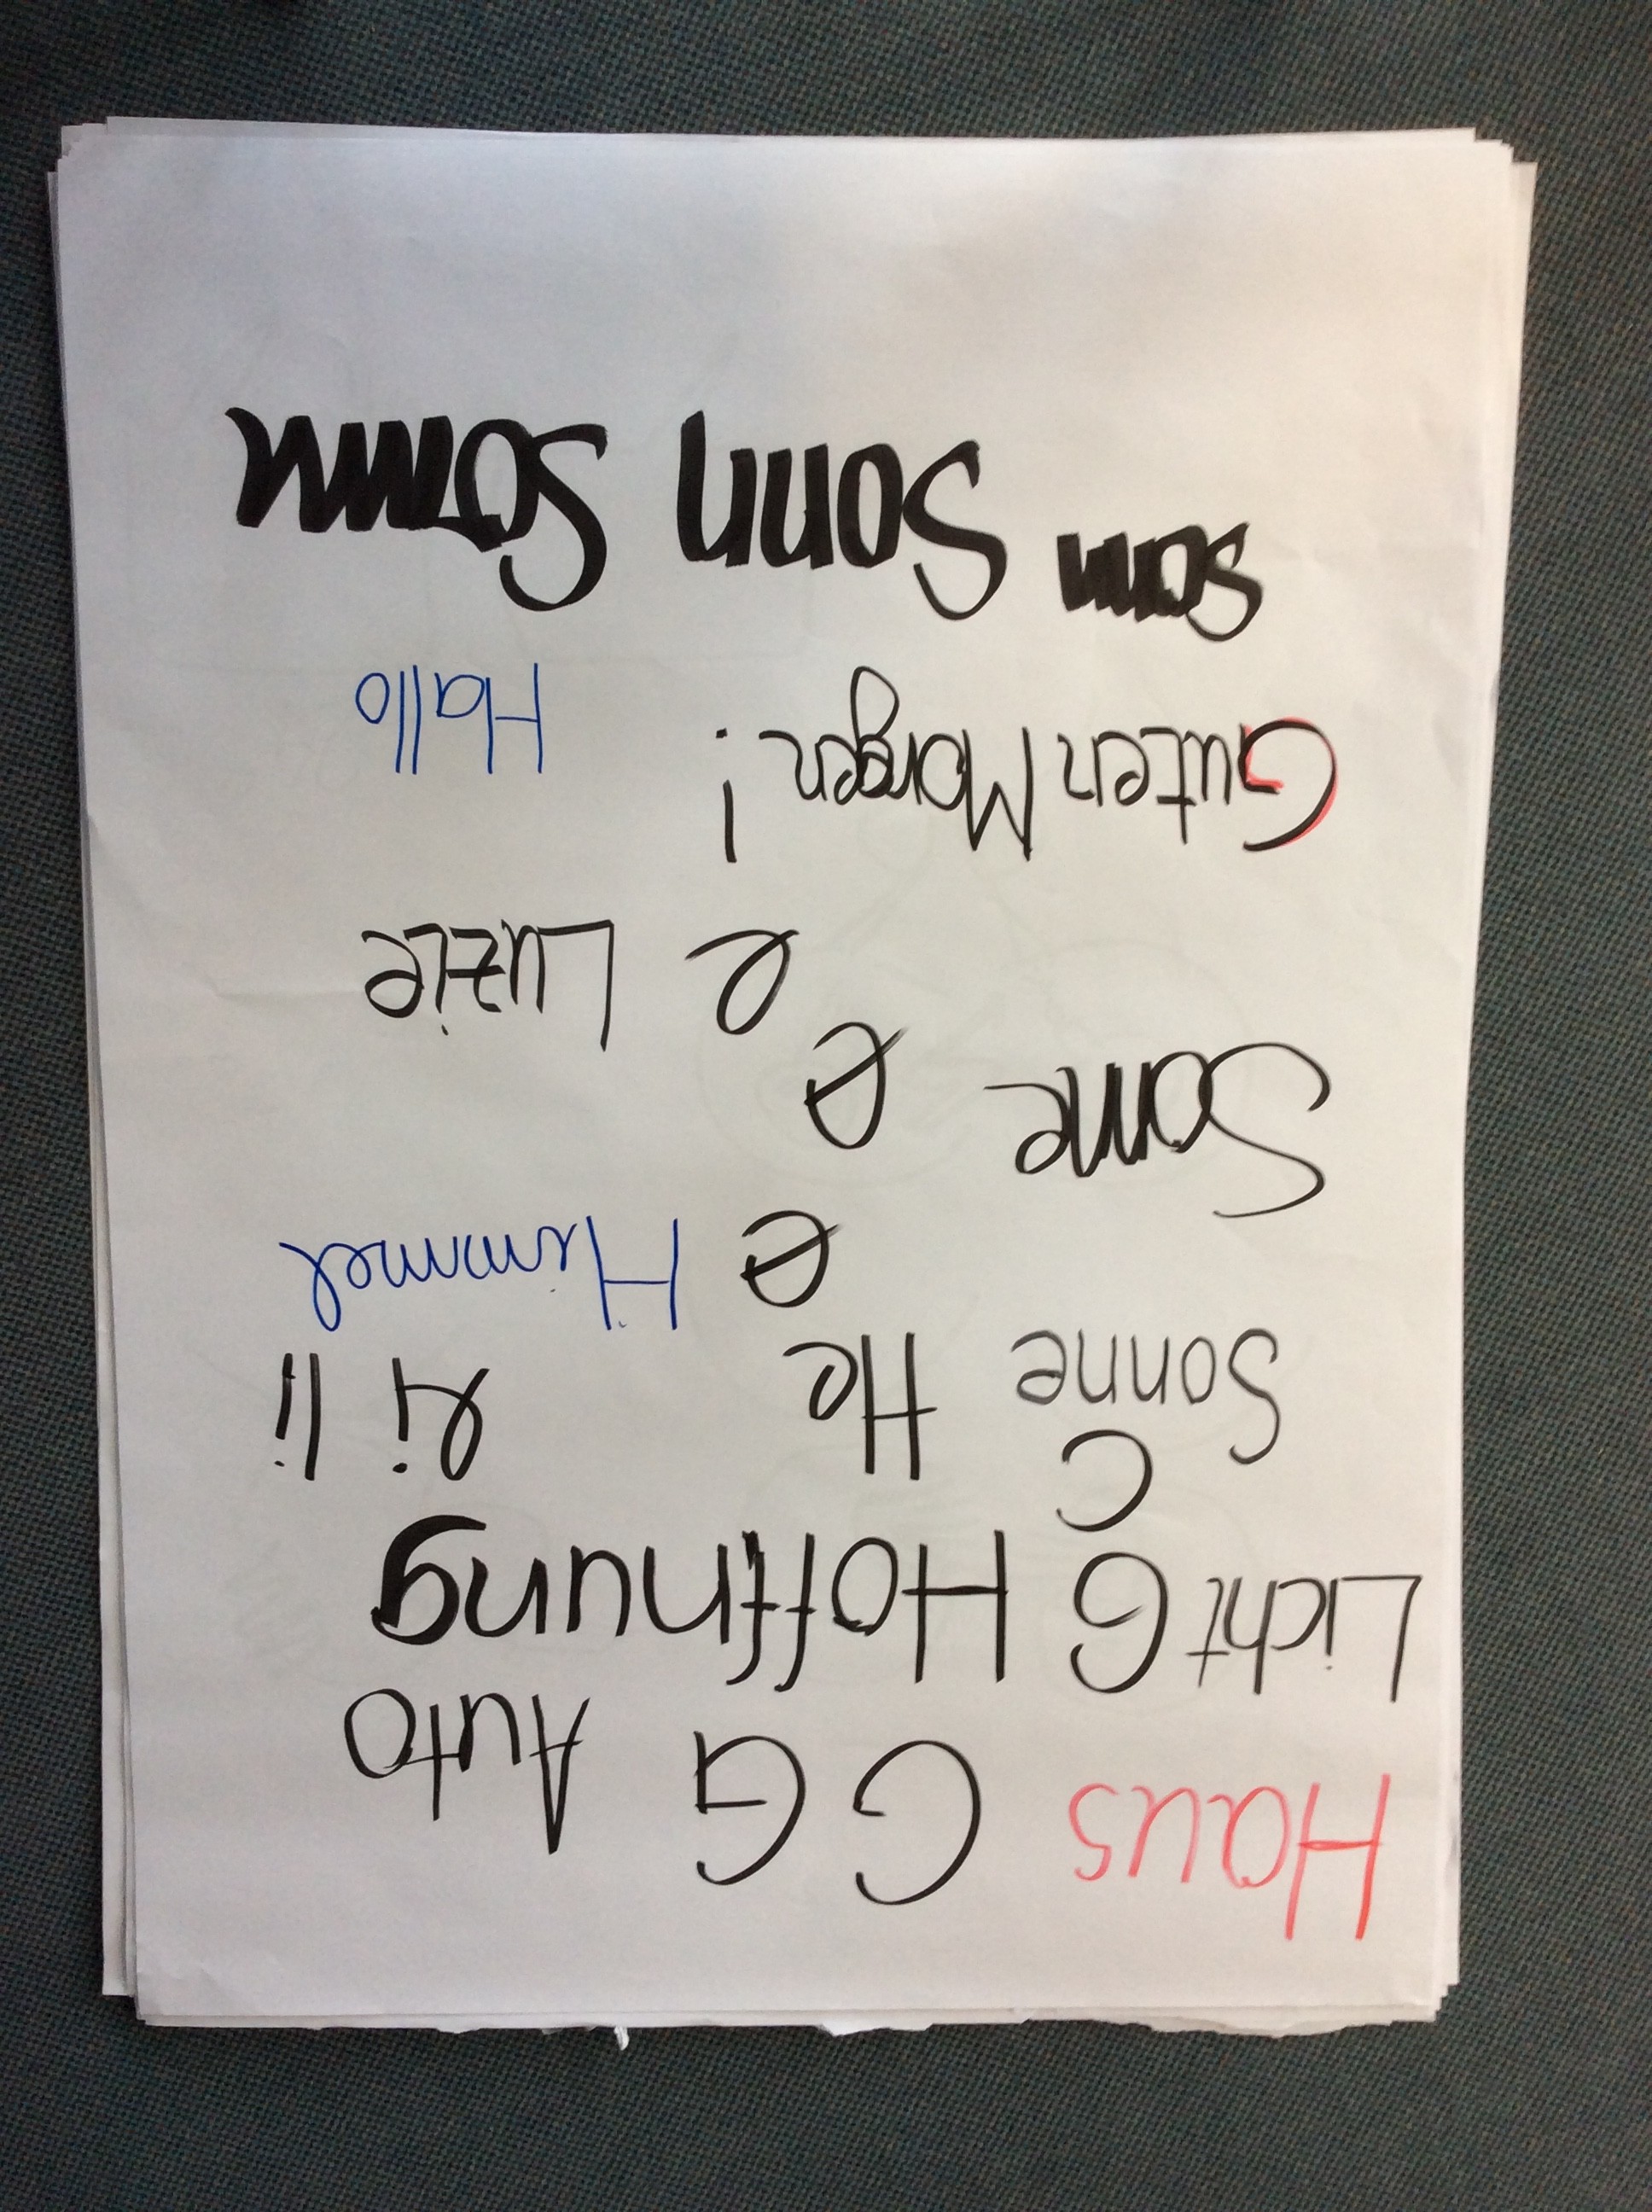 Haus G G Auto
Licht G Hoffnung
C
Sonne He ei li
e Himmel
Sonne e
e Luzie
Guten Morgen! Hallo
Sonn Sonn